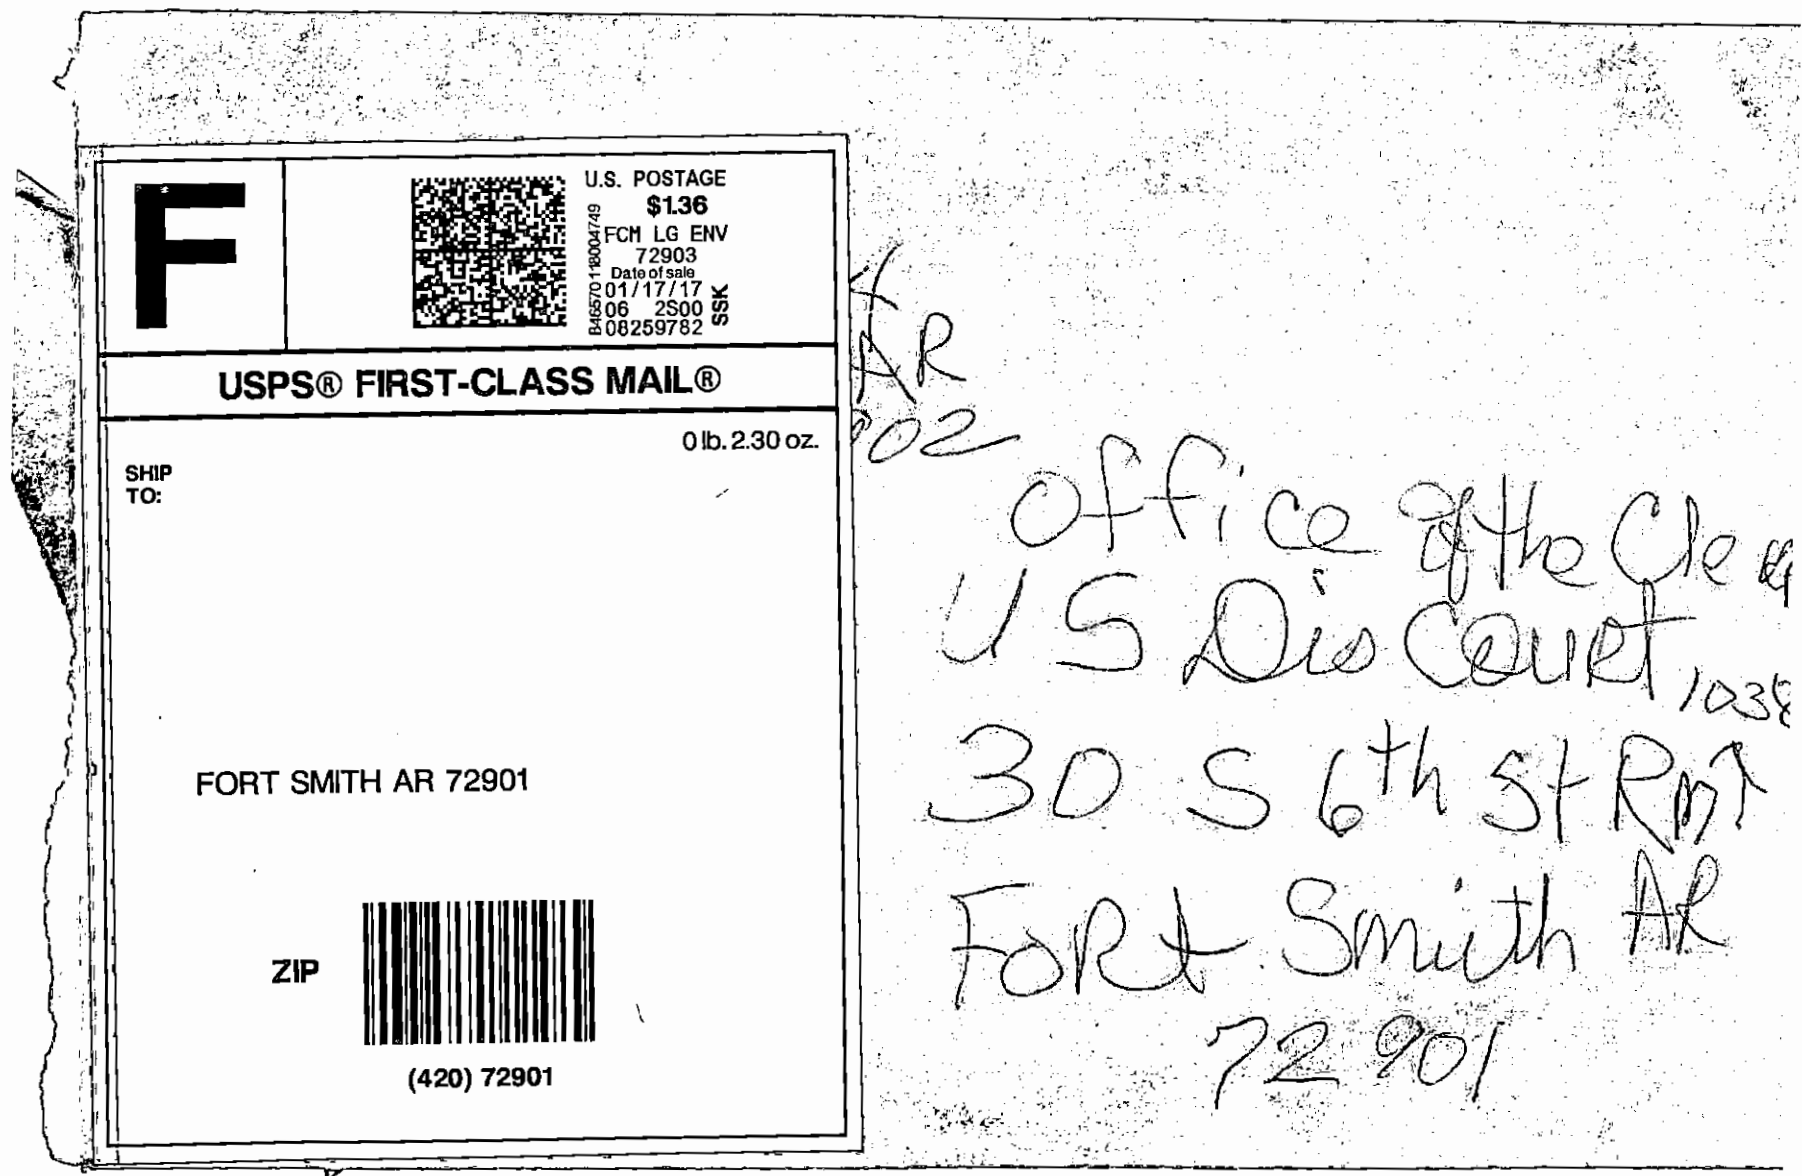 F
U.S. POSTAGE
$1.36
FCM LG ENV
72903
Date of sale
01/17/17
06 2S00
08259782
SSK
USPS® FIRST-CLASS MAIL®
0 lb. 2.30 oz.
SHIP
TO:
FORT SMITH AR 72901
ZIP
(420) 72901
AR
902
Office of the Clerk
US Dis Court
1038
30 S 6th St Rm↑
Fort Smith AR
72901